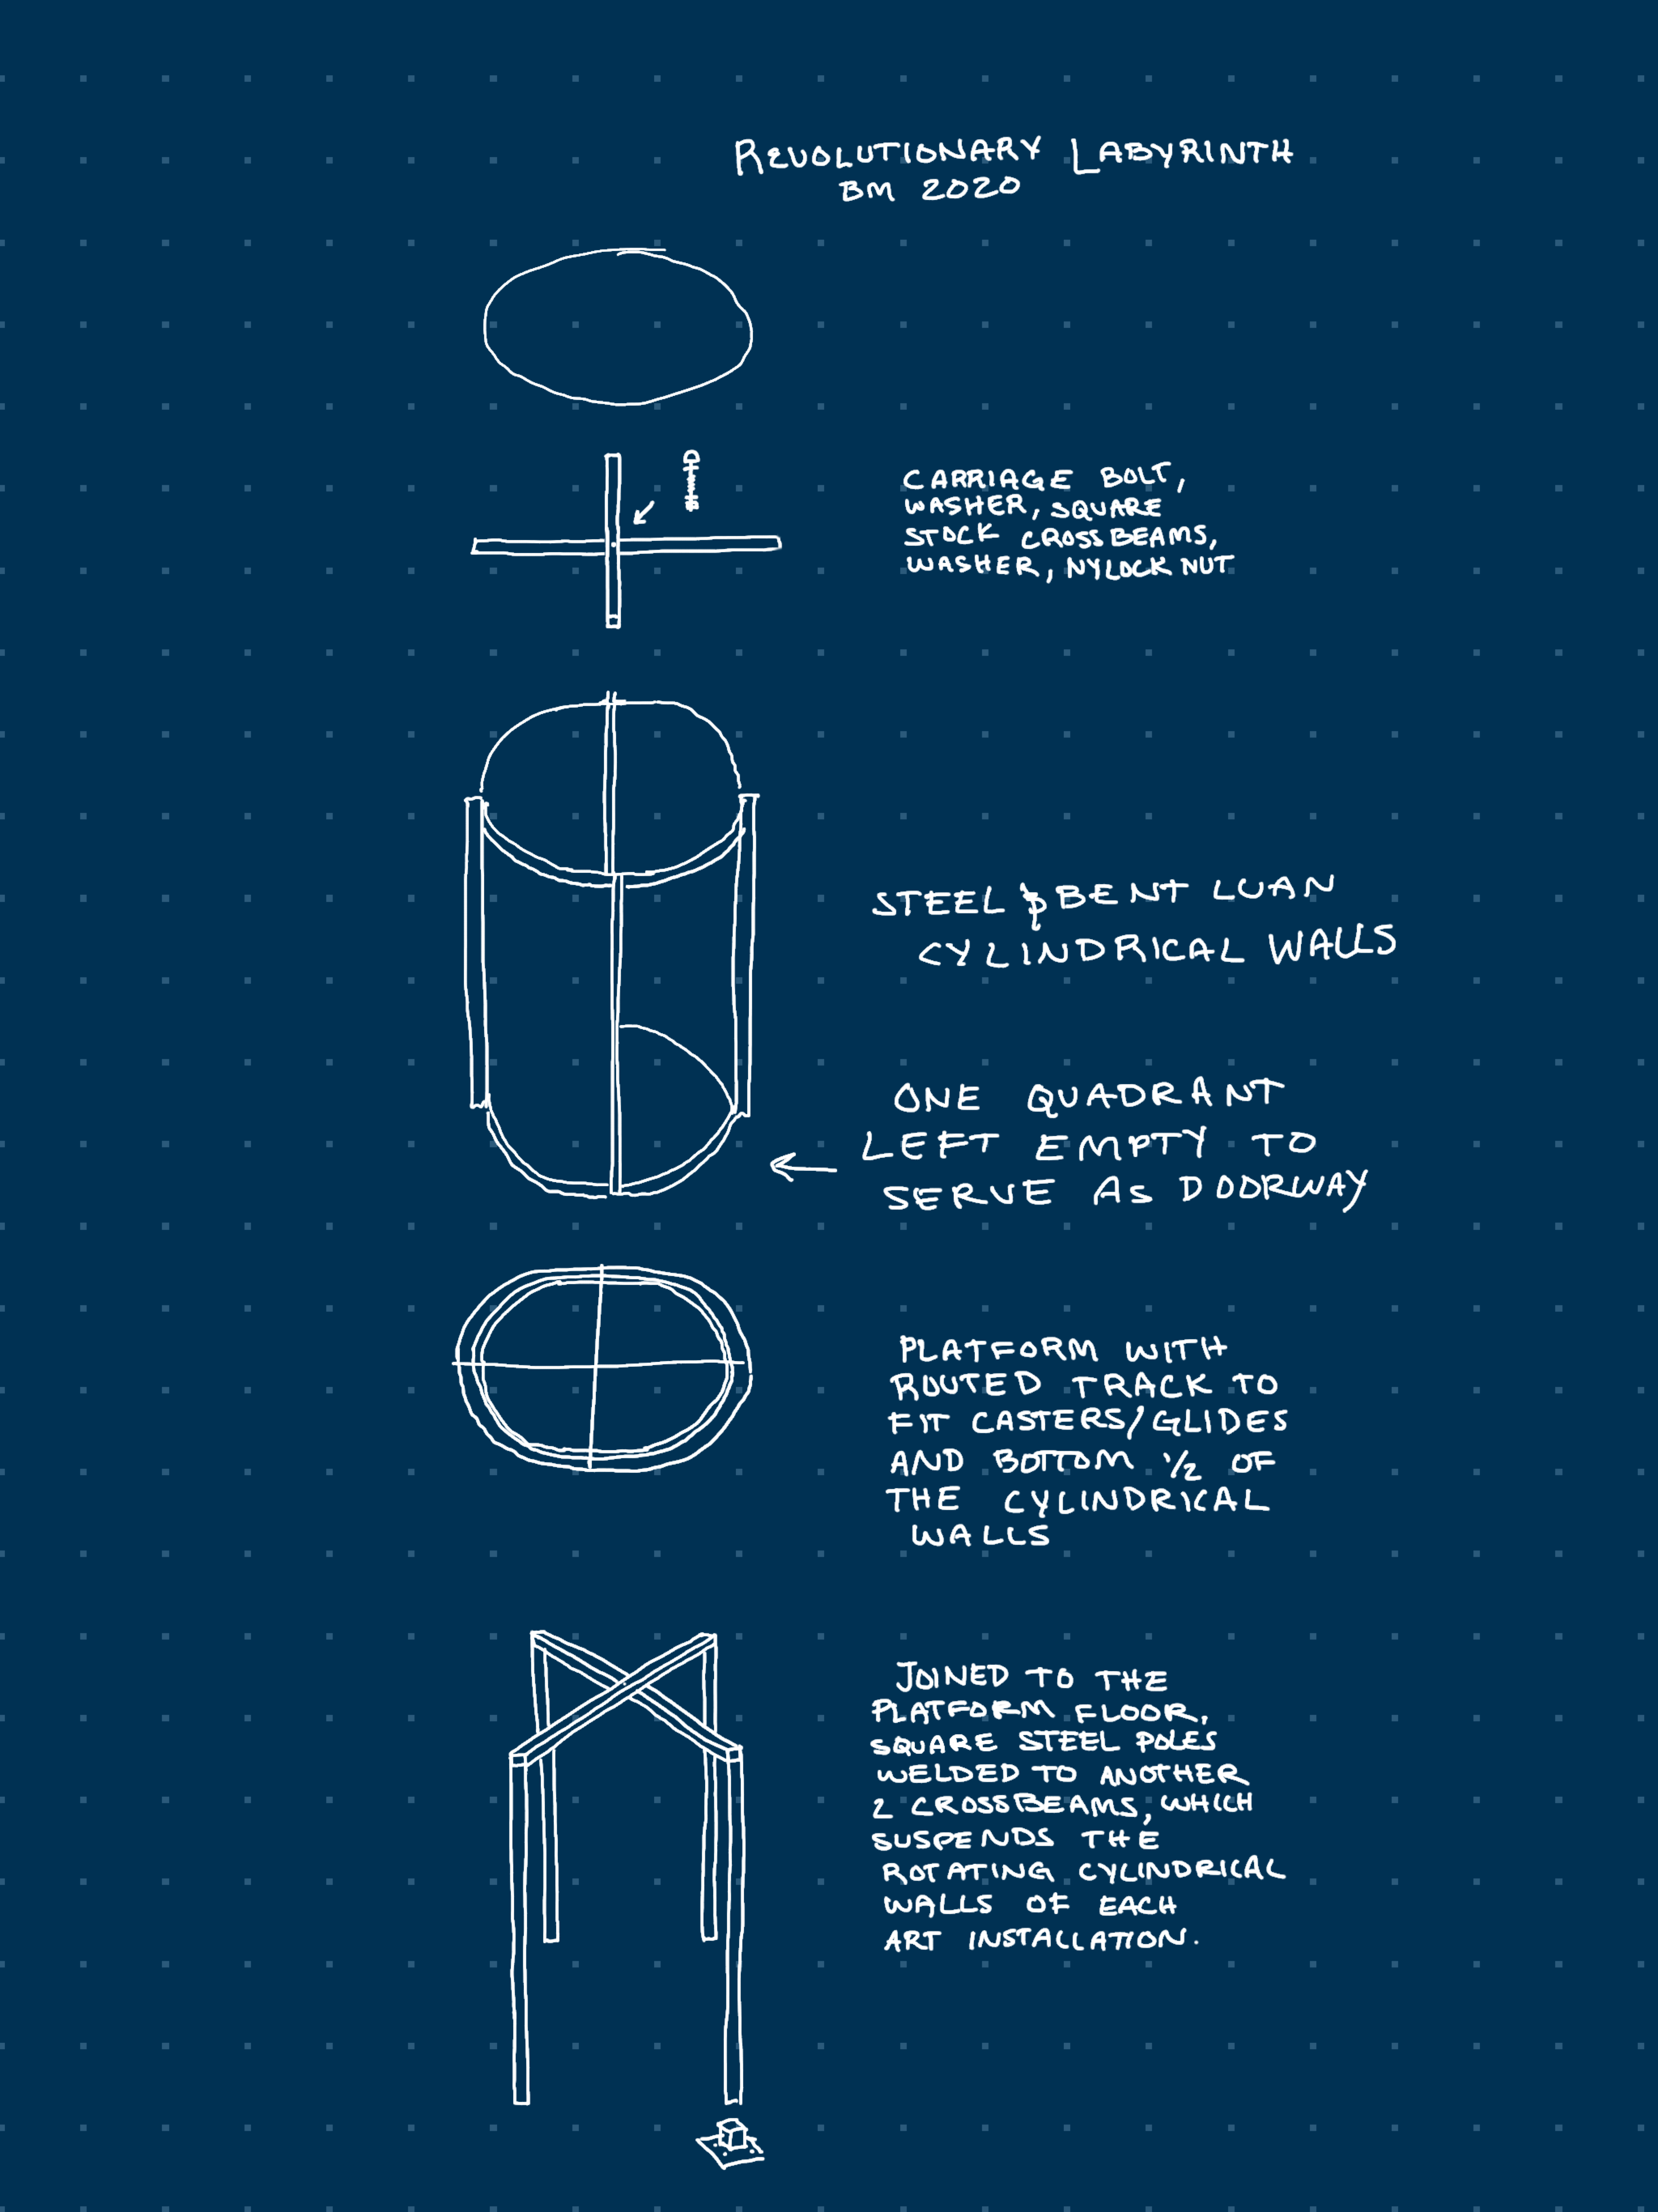 REVOLUTIONARY LABYRINTH
BM 2020
CARRIAGE BOLT,
WASHER, SQUARE
STOCK CROSSBEAMS,
WASHER, NYLOCK NUT
STEEL & BENT LUAN
CYLINDRICAL WALLS
ONE QUADRANT
LEFT EMPTY TO
SERVE AS DOORWAY
PLATFORM WITH
ROUTED TRACK TO
FIT CASTERS/GLIDES
AND BOTTOM 1/2 OF
THE CYLINDRICAL
WALLS
JOINED TO THE
PLATFORM FLOOR,
SQUARE STEEL POLES
WELDED TO ANOTHER
2 CROSSBEAMS, WHICH
SUSPENDS THE
ROTATING CYLINDRICAL
WALLS OF EACH
ART INSTALLATION.